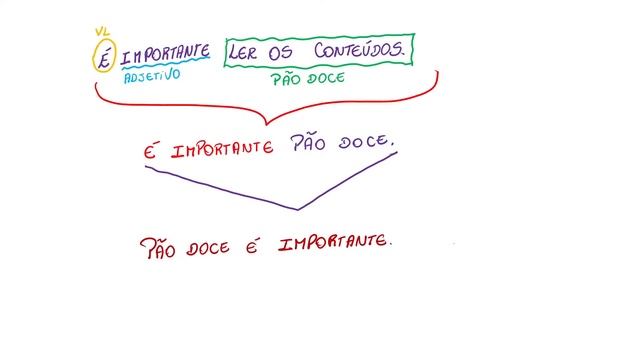 VL
É IMPORTANTE LER OS CONTEÚDOS.
ADJETIVO PÃO DOCE
É IMPORTANTE PÃO DOCE.
PÃO DOCE É IMPORTANTE.